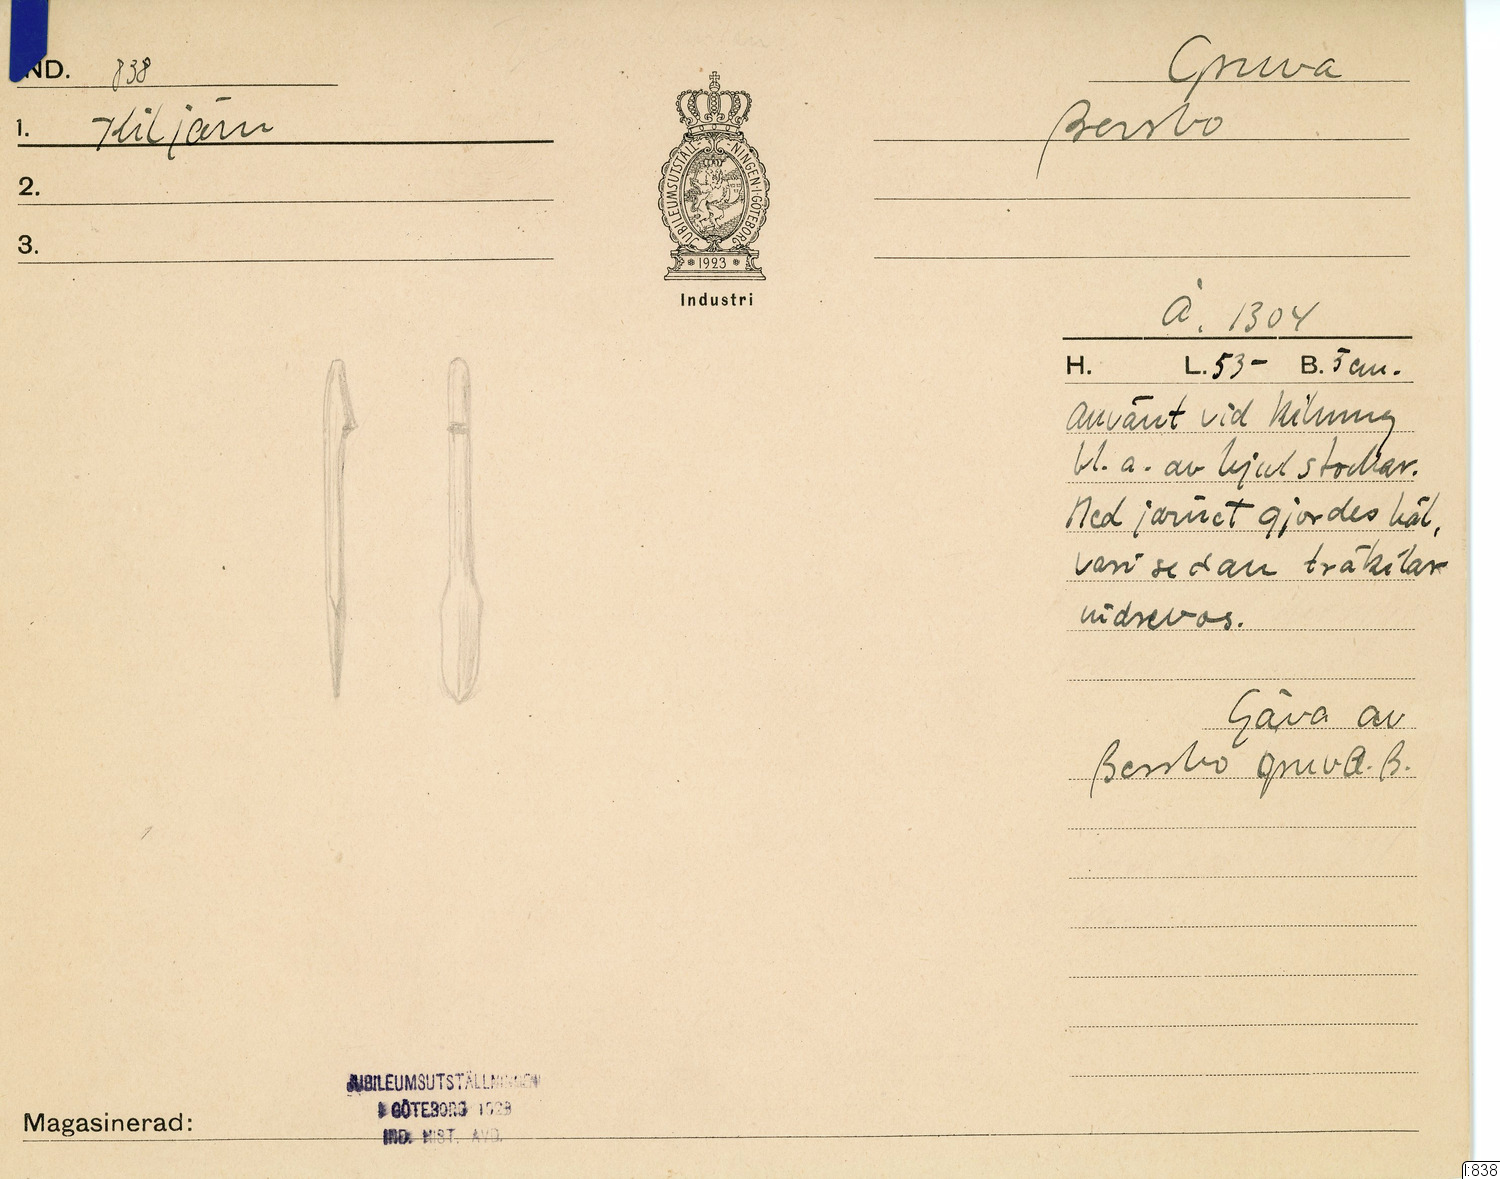 IND. 838
Gruva
1. Kiljärn
Bersbo
2.
3.
JUBILEUMSUTSTÄLLNINGEN I GÖTEBORG
1923
Industri
Å. 1304
H. L. 53- B. 5 cm.
Använt vid kilning
bl. a. av hjulstockar.
Med järnet gjordes hål,
vari sedan träkilar
nidrevos.
Gåva av
Bersbo gruv A. B.
JUBILEUMSUTSTÄLLNINGEN
I GÖTEBORG 1923
IND. HIST. AVD.
Magasinerad:
I:838